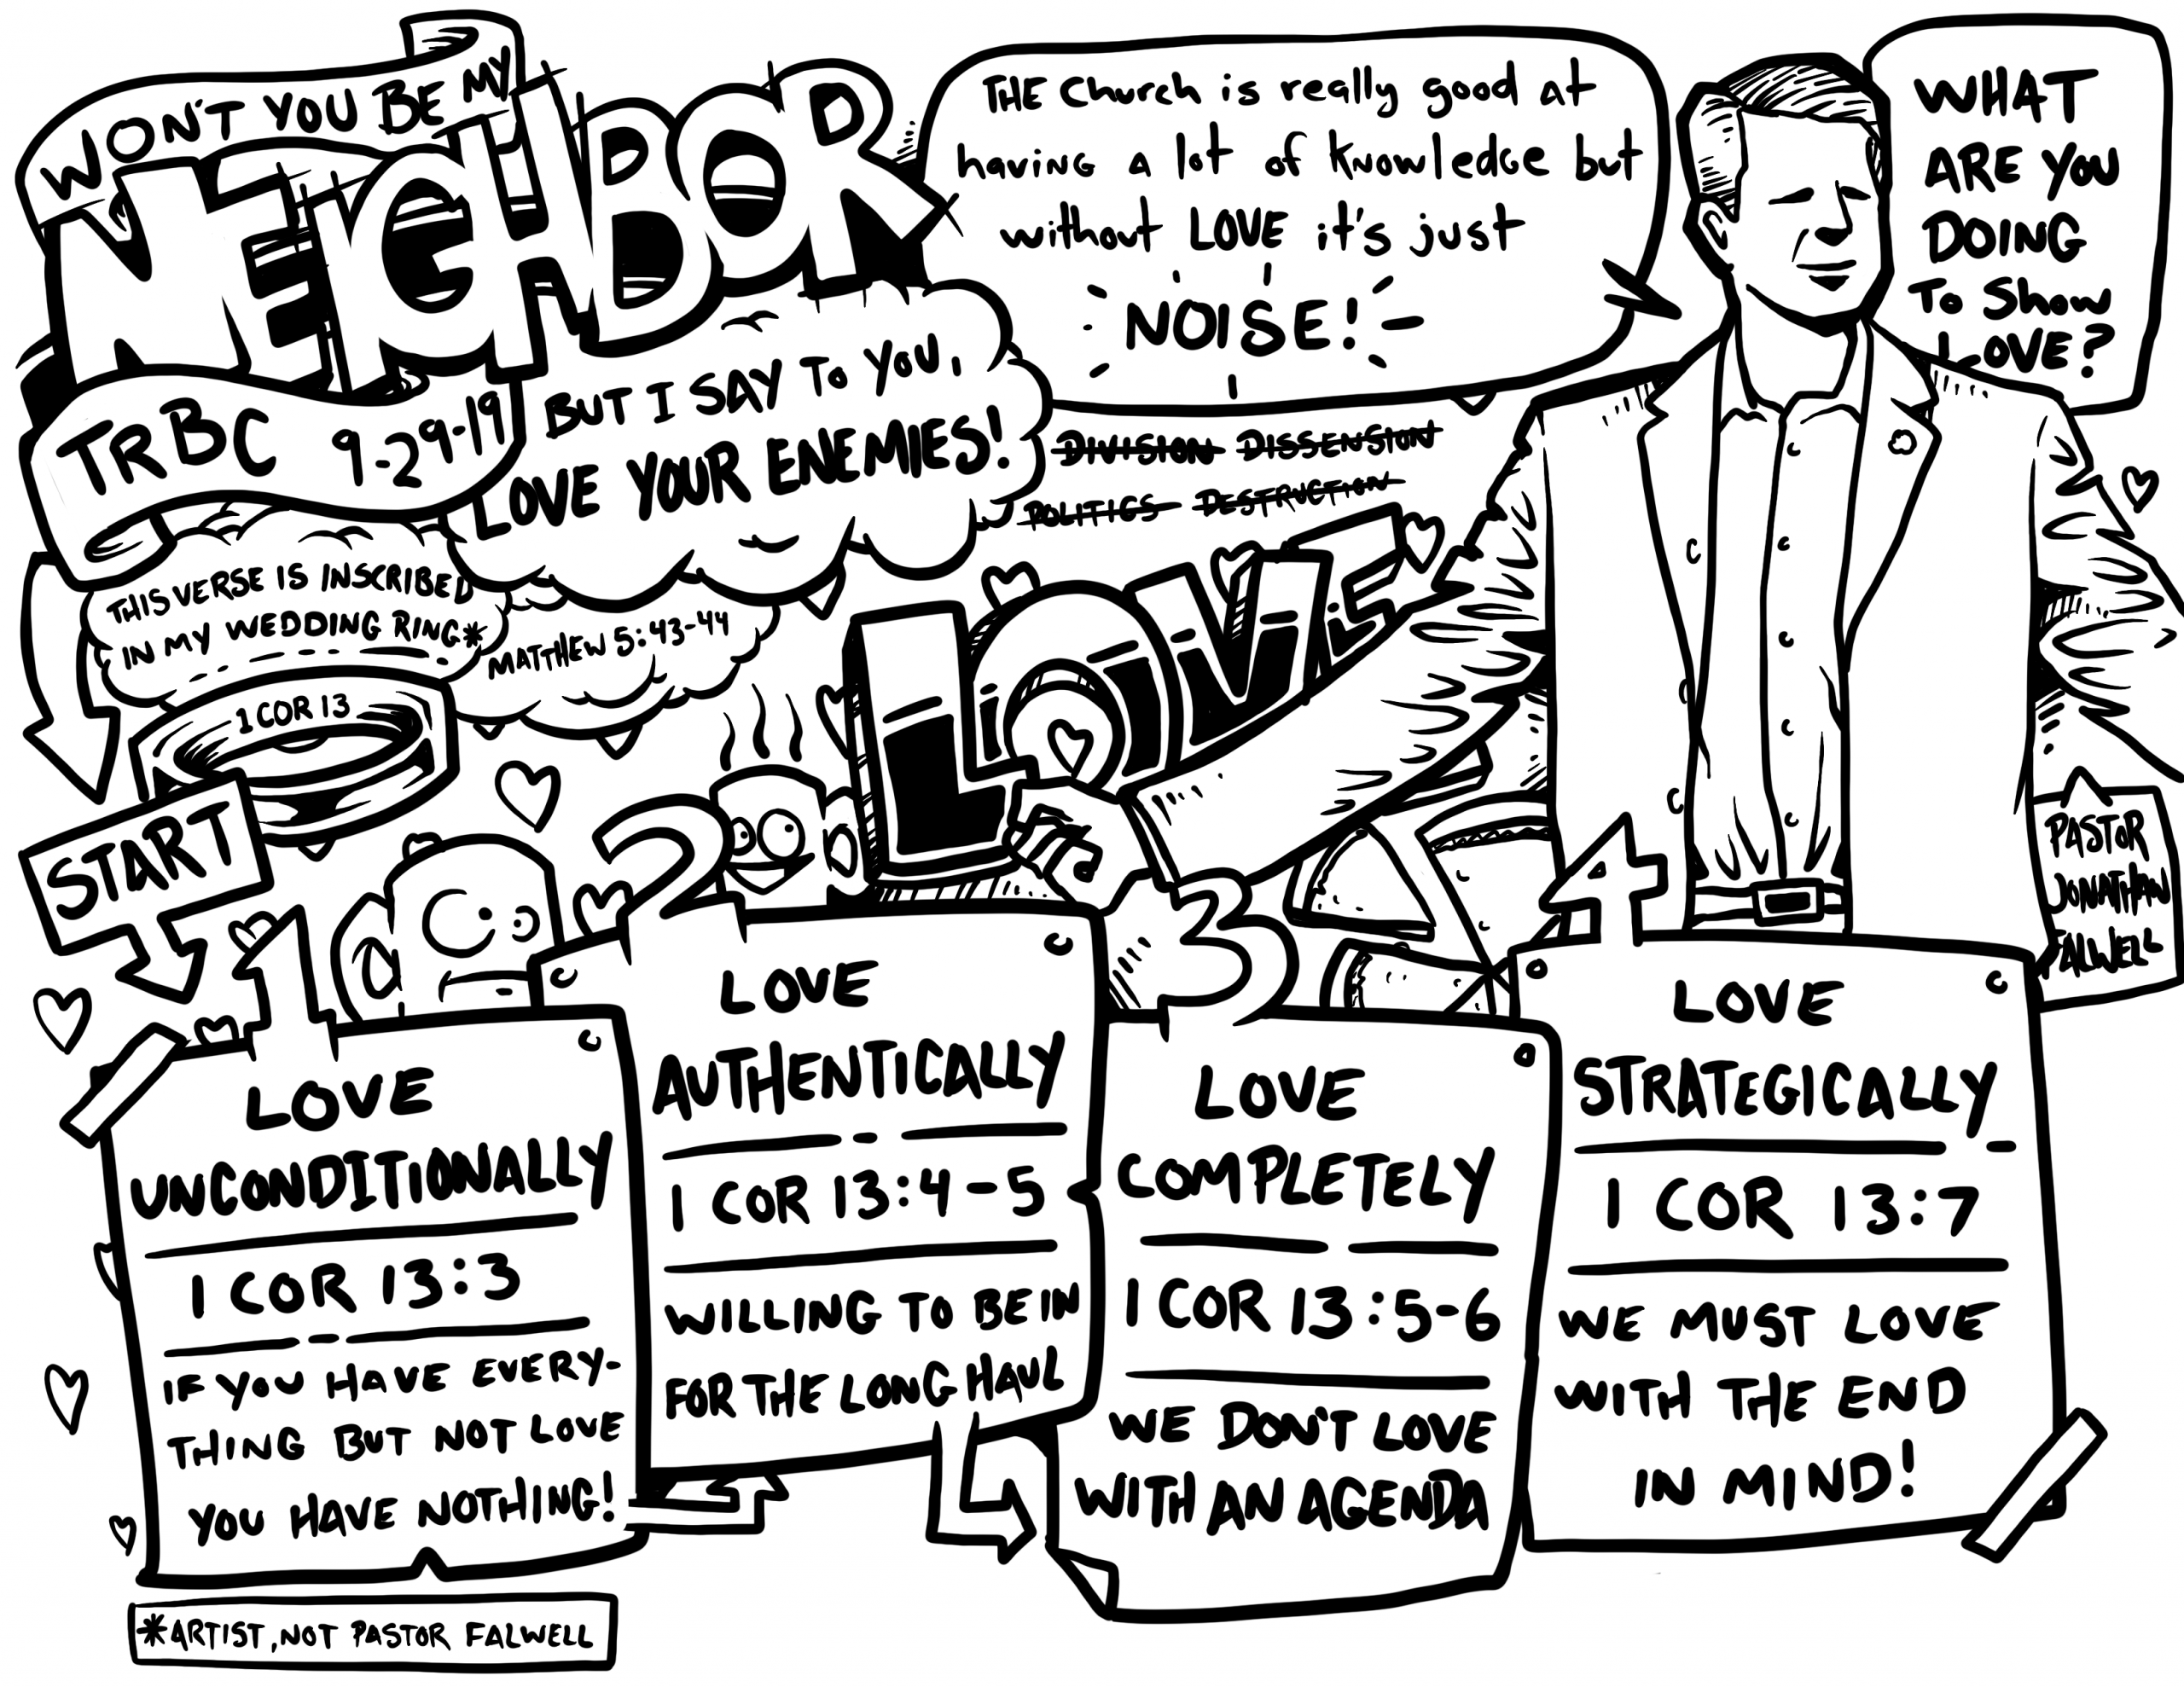 WON'T YOU BE MY
NEIGHBOR
TRBC 9-29-19
BUT I SAY TO YOU,
LOVE YOUR ENEMIES!
MATTHEW 5:43-44
THIS VERSE IS INSCRIBED
IN MY WEDDING RING*
1 COR 13
THE Church is really good at
having a lot of knowledge but
without LOVE it's just
NOISE!
WHAT
ARE YOU
DOING
To Show
LOVE?
DIVISION DISSENSION
POLITICS DESTRUCTION
LOVE
PASTOR
JONATHAN
FALWELL
START
1
LOVE
UNCONDITIONALLY
1 COR 13:3
IF YOU HAVE EVERY-
THING BUT NOT LOVE
YOU HAVE NOTHING!
2
LOVE
AUTHENTICALLY
1 COR 13:4-5
WILLING TO BE IN
FOR THE LONG HAUL
3
LOVE
COMPLETELY
1 COR 13:5-6
WE DON'T LOVE
WITH AN AGENDA
4
LOVE
STRATEGICALLY
1 COR 13:7
WE MUST LOVE
WITH THE END
IN MIND!
*ARTIST, NOT PASTOR FALWELL